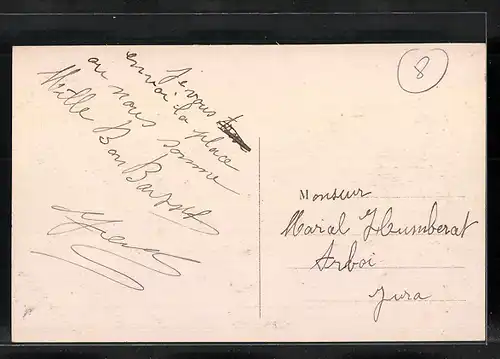 Je vous
envoi la place
ou nous somme
Mille Bon Baiser
8
Monsieur
Maral Humberat
Arboi
Jura